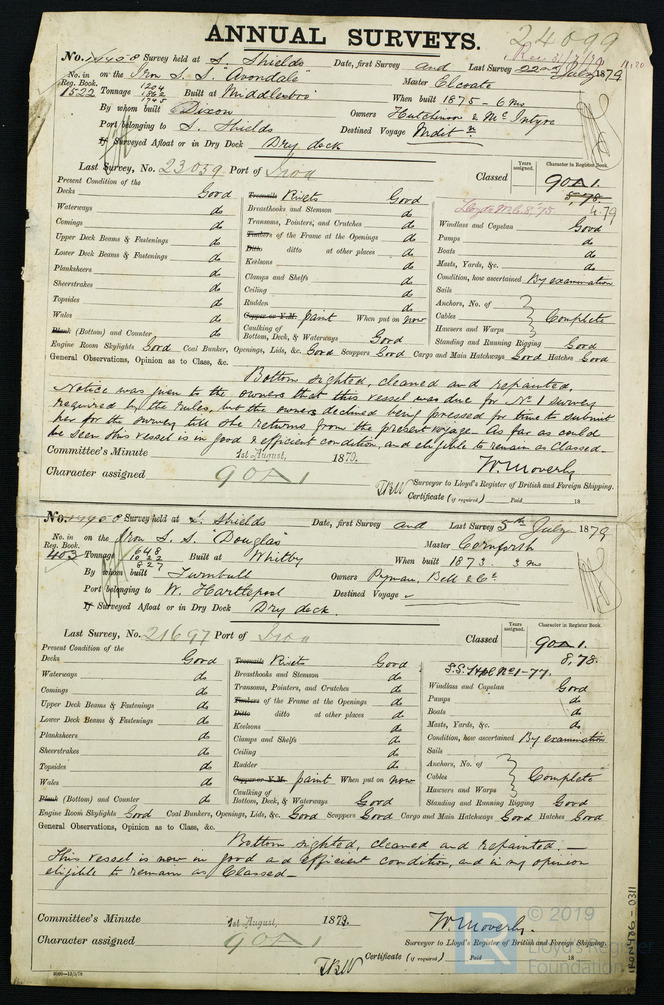 ANNUAL SURVEYS.
24099
No. Survey held at S. Shields Date, first Survey and Last Survey 22nd July 1879
No. in Reg. Book. on the Iron S. S. "Avondale" Master Elcoate
1522 Tonnage 1204 1862 1945 Built at Middlesbro' When built 1875 - 6 mo
By whom built Dixon Owners Hutchinson & McIntyre
Port belonging to S. Shields Destined Voyage Medit n
If Surveyed Afloat or in Dry Dock Dry dock
Last Survey, No. 23059 Port of Iron Classed Years assigned. Character in Register Book. 90A1.
8,78.
Lloyds M.C. 8.78. 4.79
Present Condition of the
Decks Good
Waterways do
Comings do
Upper Deck Beams & Fastenings do
Lower Deck Beams & Fastenings do
Planksheers do
Sheerstrakes do
Topsides do
Wales do
Plank (Bottom) and Counter do
Treenails Rivets Good
Breasthooks and Stemson do
Transoms, Pointers, and Crutches do
Timbers of the Frame at the Openings do
Ditto ditto at other places do
Keelsons do
Clamps and Shelfs do
Ceiling do
Rudder do
Copper or Y.M. paint When put on now
Caulking of Bottom, Deck, & Waterways Good
Windlass and Capstan Good
Pumps do
Boats do
Masts, Yards, &c. do
Condition, how ascertained By examination
Sails
Anchors, No. of
Cables Complete
Hawsers and Warps
Standing and Running Rigging Good
Engine Room Skylights Good Coal Bunkers, Openings, Lids, &c. Good Scuppers Good Cargo and Main Hatchways Good Hatches Good
General Observations, Opinion as to Class, &c.
Bottom sighted, cleaned and repainted,
Notice was given to the owners that this vessel was due for No 1 survey
required by the rules, but the owners declined being pressed for time to submit
her for the survey till she returns from the present voyage. As far as could
be seen this vessel is in good & efficient condition, and eligible to remain as Classed.
Committee's Minute 1st August, 1879.
Character assigned 90A1
W. Moverly
Surveyor to Lloyd's Register of British and Foreign Shipping.
Certificate (if required) Paid 18
No. Survey held at S. Shields Date, first Survey and Last Survey 5th July 1879
No. in Reg. Book. on the Iron S. S. "Douglas" Master Cornforth
403 Tonnage 648 1022 827 Built at Whitby When built 1873. 3 mo
By whom built Turnbull Owners Pyman, Bell & Co
Port belonging to W. Hartlepool Destined Voyage
If Surveyed Afloat or in Dry Dock Dry dock.
Last Survey, No. 21697 Port of Iron Classed Years assigned. Character in Register Book. 90A1.
8,78.
S.S. Hpl No 1-77.
Present Condition of the
Decks Good
Waterways do
Comings do
Upper Deck Beams & Fastenings do
Lower Deck Beams & Fastenings do
Planksheers do
Sheerstrakes do
Topsides do
Wales do
Plank (Bottom) and Counter do
Treenails Rivets Good
Breasthooks and Stemson do
Transoms, Pointers, and Crutches do
Timbers of the Frame at the Openings do
Ditto ditto at other places do
Keelsons do
Clamps and Shelfs do
Ceiling do
Rudder do
Copper or Y.M. paint When put on now
Caulking of Bottom, Deck, & Waterways Good
Windlass and Capstan Good
Pumps do
Boats do
Masts, Yards, &c. do
Condition, how ascertained By examination
Sails
Anchors, No. of
Cables Complete
Hawsers and Warps
Standing and Running Rigging Good
Engine Room Skylights Good Coal Bunkers, Openings, Lids, &c. Good Scuppers Good Cargo and Main Hatchways Good Hatches Good
General Observations, Opinion as to Class, &c.
Bottom sighted, cleaned and repainted.
This vessel is now in good and efficient condition, and in my opinion
eligible to remain as Classed
Committee's Minute 1st August, 1879.
Character assigned 90A1
W. Moverly.
Surveyor to Lloyd's Register of British and Foreign Shipping.
Certificate (if required) Paid 18
IRON406-0311
© 2019
Lloyd's Register
Foundation